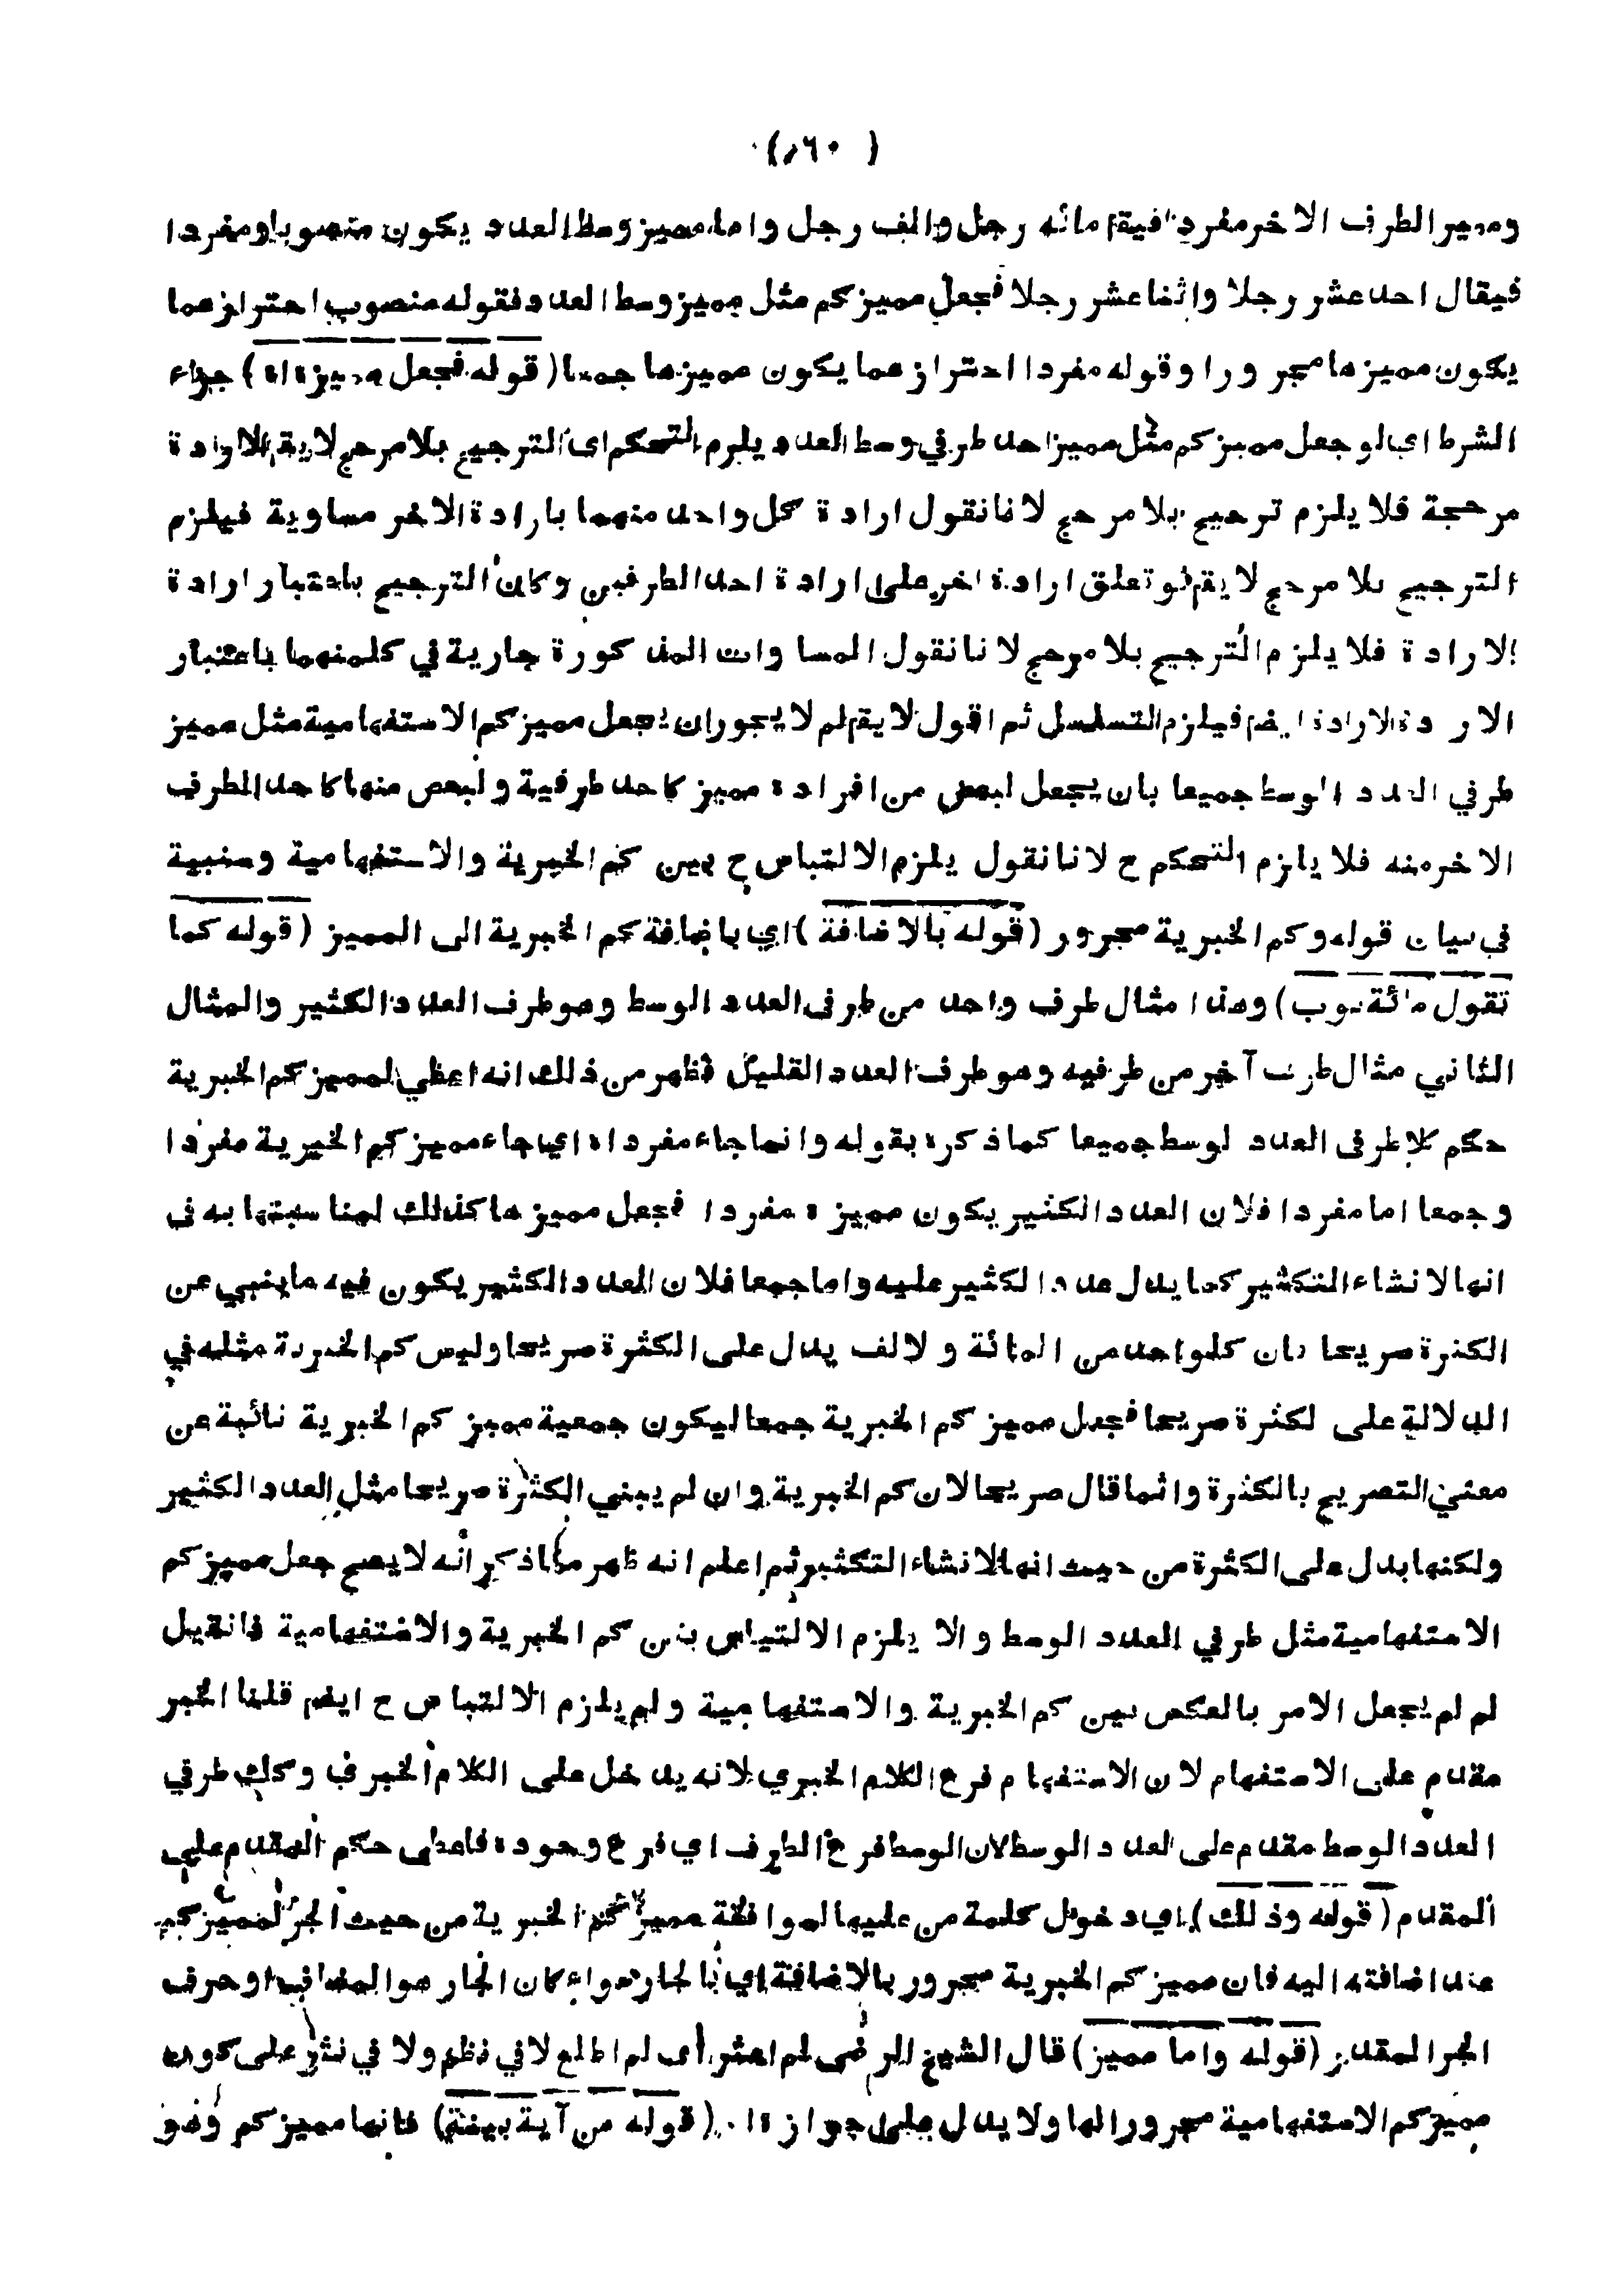 ( ٠٦٢ )
ومميز الطرف الاخر مفرد فيقم مائه رجل والف رجل واما مميز وسط العدد يكون منصوبا ومفردا
فيقال احد عشر رجلا واثنا عشر رجلا فجعل مميز كم مثل مميز وسط العدد فقوله منصوب احتراز عما
يكون مميزها مجرورا وقوله مفردا احتراز عما يكون مميزها جمعا (قوله فجعل مميزه اه) جزاء
الشرط اي لو جعل مميز كم مثل مميز احد طرفي وسط العدد يلزم التحكم اي الترجيح بلا مرجح لا يقم الارادة
مرجحة فلا يلزم ترجيح بلا مرجح لانا نقول ارادة كل واحد منهما بارادة الاخر مساوية فيلزم
الترجيح بلا مرجح لا يقم لو تعلق ارادة اخر على ارادة احد الطرفين وكان الترجيح باعتبار ارادة
الارادة فلا يلزم الترجيح بلا مرجح لانا نقول المساوات المذكورة جارية في كلمنهما باعتبار
الارادة الارادة ايضم فيلزم التسلسل ثم اقول لا يقم لم لا يجوز ان يجعل مميز كم الاستفهامية مثل مميز
طرفي العدد الوسط جميعا بان يجعل لبعض من افراده مميز كاحد طرفية ولبعض منها كاحد الطرف
الاخر منه فلا يلزم التحكم ح لانا نقول يلزم الالتباس ح بين كم الخبرية والاستفهامية وسنبية
في بيان قوله وكم الخبرية مجرور (قوله بالاضافة) اي باضافة كم الخبرية الى المميز (قوله كما
تقول مائة ثوب) وهذا مثال طرف واحد من طرفى العدد الوسط وهو طرف العدد الكثير والمثال
الثاني مثال طرف آخر من طرفيه وهو طرف العدد القليل فظهر من ذلك انه اعطي لمميز كم الخبرية
حكم كلا طرفى العدد لوسط جميعا كما ذكره بقوله وانما جاء مفردا اه اي جاء مميز كم الخبرية مفردا
وجمعا اما مفردا فلان العدد الكثير يكون مميزه مفردا فجعل مميزها كذلك لمناسبتها به فى
انها لانشاء التكثير كما يدل عدد الكثير عليه واما جمعا فلان العدد الكثير يكون فيه ما ينبي عن
الكثرة صريحا بان كلواحد من المائة ولالف يدل على الكثرة صريحا وليس كم الخبرية مثله في
الدلالة على لكثرة صريحا فجعل مميز كم الخبرية جمعا ليكون جمعية مميز كم الخبرية نائبة عن
معني التصريح بالكثرة وانما قال صريحا لان كم الخبرية وان لم يبني الكثرة صريحا مثل العدد الكثير
ولكنها يدل على الكثرة من حيث انها لانشاء التكثير ثم اعلم انه ظهر مما ذكر انه لا يصح جعل مميز كم
الاستفهامية مثل طرفي العدد الوسط والا يلزم الالتباس بين كم الخبرية والاستفهامية فانقيل
لم لم يجعل الامر بالعكس بين كم الخبرية والاستفهامية ولم يلزم الالتباس ح ايضم قلنا الخبر
مقدم على الاستفهام لان الاستفهام فرع الكلام الخبري لانه يدخل على الكلام الخبرى وكذلك طرفي
العدد الوسط مقدم على العدد الوسط لان الوسط فرع الطرف اي فرع وجوده فاعطى حكم المقدم على
المقدم (قوله وذلك) اي دخول كلمة من عليها لموافقة مميز كم الخبرية من حيث الجر لمميز كم
عند اضافته اليه فان مميز كم الخبرية مجرور بالاضافة اي بالجار سواء كان الجار هو المضاف او حرف
الجر المقدر (قوله واما مميز) قال الشيخ الرضى لم اعثر أى لم اطلع لا في نظم ولا في نثر على كونه
مميز كم الاستفهامية مجرورا لها ولا يدل على جوازه اه (قوله من آية بينة) فانها مميز كم وهو